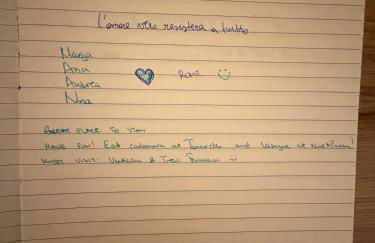 L'amore vero resisterà a tutto
Marija
Ana
Andrea
Nina
ROME
GREAT PLACE TO STAY
HAVE FUN! Eat carbonara at Tonarello and lasagne at
MUST VISIT: Vatican & Trevi Fountain